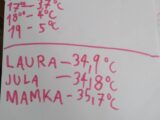 17⁰⁰ - 37°C
18⁰⁰ - 4°C
19 - 5°C
LAURA - 34,9°C
JULA - 34,8°C
MAMKA - 35,7°C